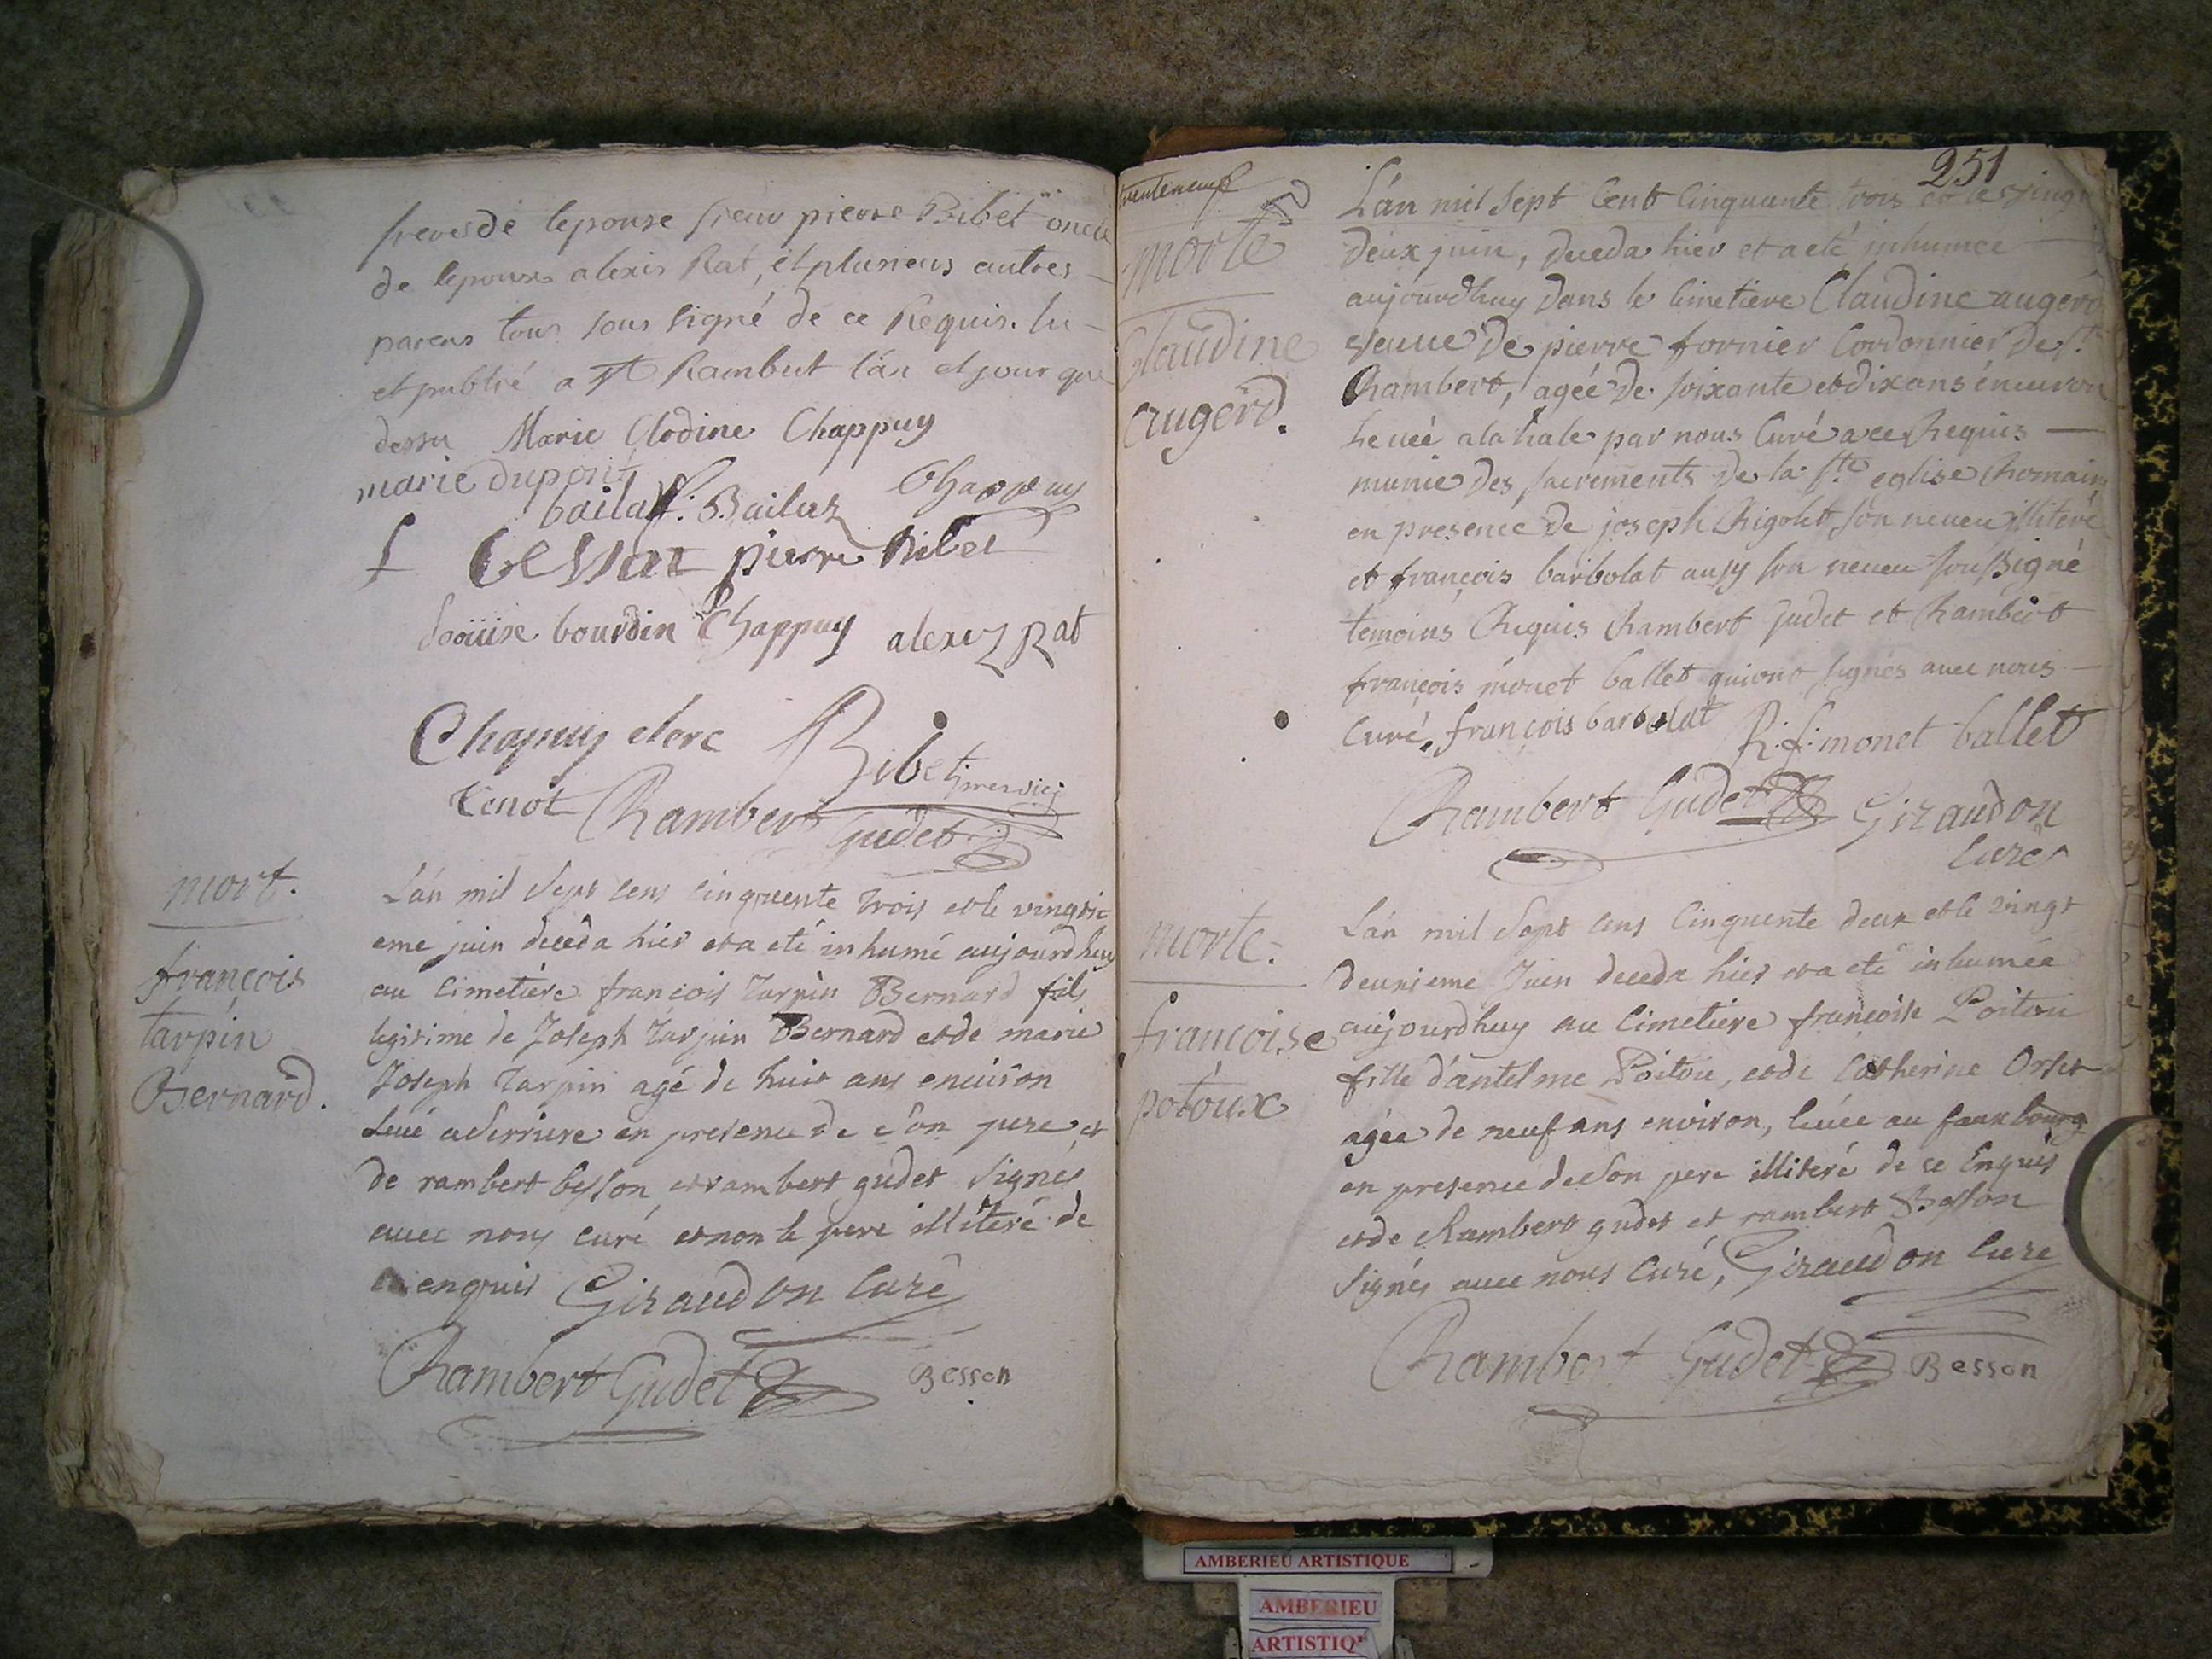 freres de lepouse sieur pierre Ribet oncle
de lepouse alexis Rat, et plusieurs autres
parens tous sous signé de ce Requis. lu
et publié a St Rambert l'an et jour que
dessu Marie Clodine Chappuy
marie dupont
bailat f. Bailuz Chappuy
f pierre Ribet
bourdin Chappuy alexiz Rat
Chapuy clerc Ribet
Tenot Rambert Gudet
mort.
françois
tarpin
Bernard.
L'an mil sept cens cinquente trois et le vingtie
eme juin deceda hier et a eté inhumé aujourdhuy
au cimetiere françois Tarpin Bernard fils
legitime de Joseph Tarpin Bernard et de marie
Joseph Tarpin agé de huit ans enuiron
Leué a Serriere en presence de son pere et
de rambert besson et rambert gudet signés
auec nous curé et non le pere illiteré de
ce enquis Giraudon Curé
Rambert Gudet Besson
trenteneuf
251
morte
Claudine
augerd.
L'an mil sept Cent Cinquante trois et le vingt
deux juin, deceda hier et a eté inhumee
aujourdhuy dans le Cimetiere Claudine augerd
veuue de pierre fornier Cordonnier de St
Rambert, agéé de soixante et dix ans énuiron
Leuéé a la hale par nous Curé a ce Requis
munie des sacrements de la Ste eglise Romaine
en presence de joseph Rigolet son neueu illiteré
et françois barbolat ausy son neueu soussigné
temoins Requis Rambert Gudet et Rambert
françois monet ballet qui ont signés auec nous
Curé. françois barbolat R. f. monet ballet
Rambert Gudet Giraudon
Curé
morte.
françoise
potoux
L'an mil sept cens Cinquente deux et le vingt
deuxieme Juin deceda hier et a eté inhumée
aujourdhuy au Cimetiere francoise Poitou
fille d'antelme Poitou, et de Catherine Orset
agée de neuf ans environ, leuée au fauxbourg
en presence de son pere illiteré de ce Enquis
et de Rambert gudet et rambert Besson
signés auec nous Curé, Giraudon Cure
Rambert Gudet Besson
AMBERIEU ARTISTIQUE
AMBERIEU
ARTISTIQ